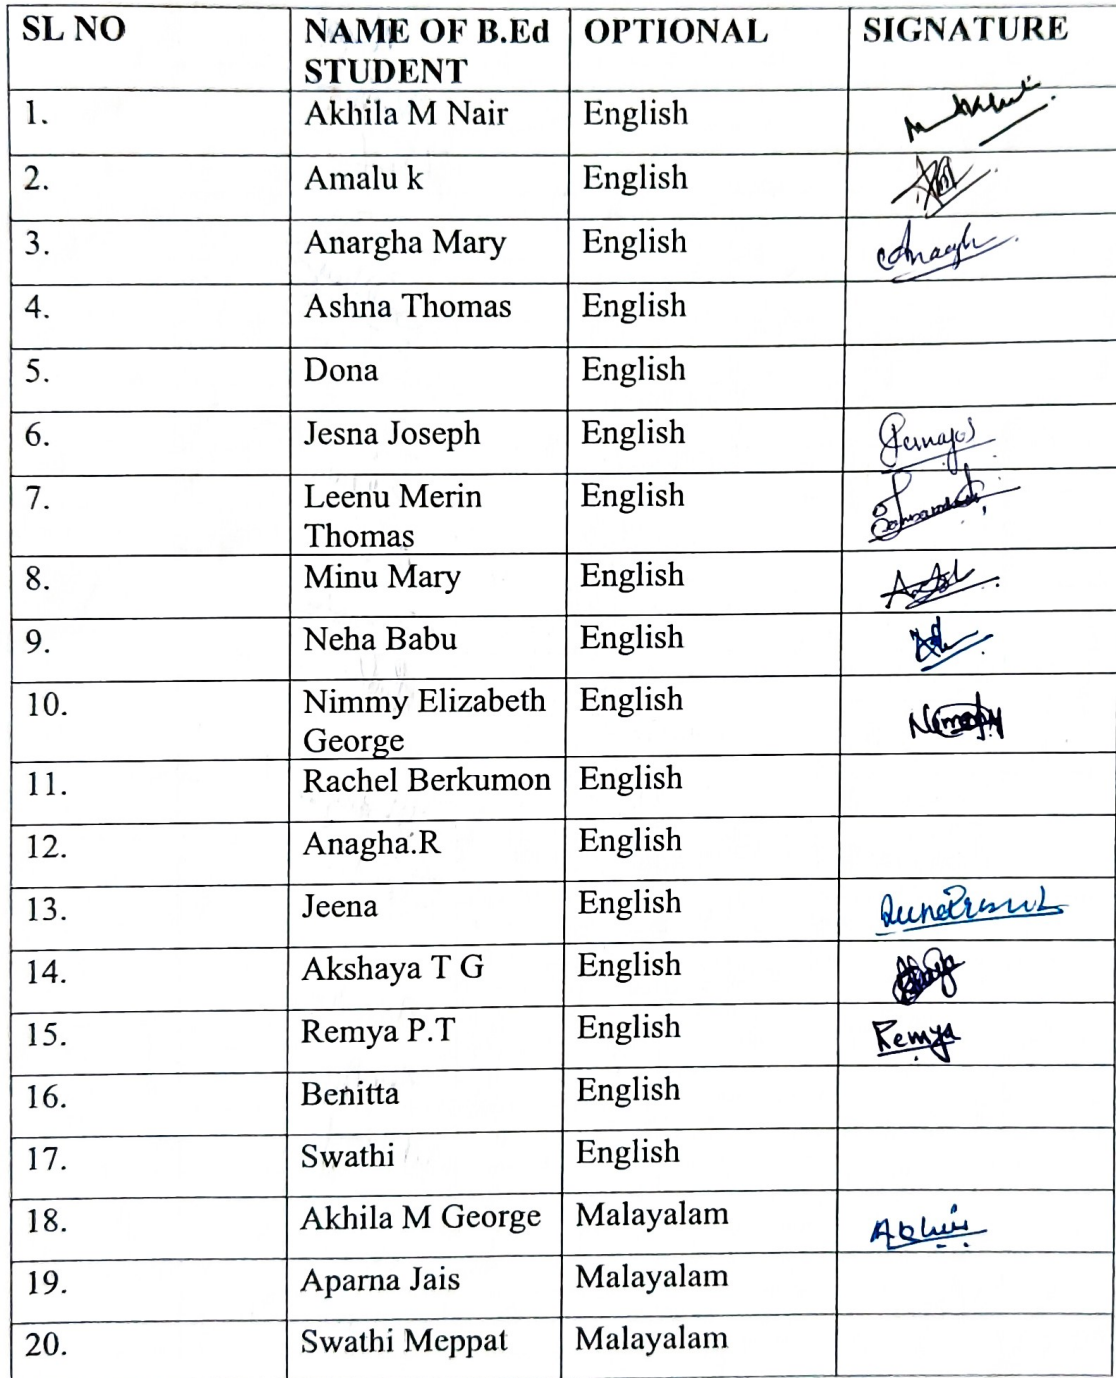 SL NO NAME OF B.Ed STUDENT OPTIONAL SIGNATURE
1. Akhila M Nair English
2. Amalu k English
3. Anargha Mary English
4. Ashna Thomas English
5. Dona English
6. Jesna Joseph English
7. Leenu Merin Thomas English
8. Minu Mary English
9. Neha Babu English
10. Nimmy Elizabeth George English
11. Rachel Berkumon English
12. Anagha.R English
13. Jeena English
14. Akshaya T G English
15. Remya P.T English Remya
16. Benitta English
17. Swathi English
18. Akhila M George Malayalam
19. Aparna Jais Malayalam
20. Swathi Meppat Malayalam